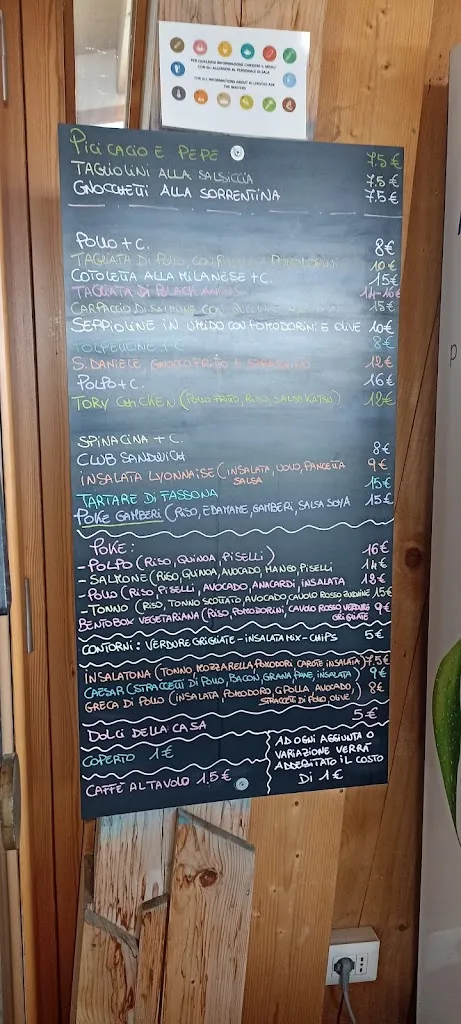 PER QUALSIASI INFORMAZIONE CHIEDERE IL MENU'
CON GLI ALLERGENI AL PERSONALE DI SALA
FOR ALL INFORMATIONS ABOUT ALLERGENS ASK
THE WAITERS
PICI CACIO E PEPE 7.5€
TAGLIOLINI ALLA SALSICCIA 7.5€
GNOCCHETTI ALLA SORRENTINA 7.5€
POLLO + C. 8€
TAGLIATA DI POLLO CON POMODORINI 10€
COTOLETTA ALLA MILANESE + C. 15€
TAGLIATA DI BLACK ANGUS 14-16€
CARPACCIO DI SALMONE CON 15€
SEPPIOLINE IN UMIDO CON POMODORINI E OLIVE 10€
8€
S. DANIELE, GNOCCO FRITTO E 12€
POLPO + C. 16€
TORY CHICKEN (POLLO FRITTO, RISO, SALSA KATSU) 12€
SPINACINA + C. 8€
CLUB SANDWICH 9€
INSALATA LYONNAISE (INSALATA, UOVO, PANCETTA
SALSA 15€
TARTARE DI FASSONA 15€
POKE GAMBERI (RISO, EDAMAME, GAMBERI, SALSA SOYA
POKE:
- POLPO (RISO, QUINOA, PISELLI) 16€
- SALMONE (RISO, QUINOA, AVOCADO, MANGO, PISELLI 14€
- POLLO (RISO, PISELLI, AVOCADO, ANACARDI, INSALATA 12€
- TONNO (RISO, TONNO SCOTTATO, AVOCADO, CAVOLO ROSSO, ZUCCHINE 15€
BENTOBOX VEGETARIANA (RISO, POMODORINI, CAVOLO ROSSO, VERDURE 9€
GRIGLIATE
CONTORNI: VERDURE GRIGLIATE - INSALATA MIX - CHIPS 5€
INSALATONA (TONNO, MOZZARELLA, POMODORI, CAROTE INSALATA) 7.5€
CAESAR (STRACCETTI DI POLLO, BACON, GRANA, PANE, INSALATA) 9€
GRECA DI POLLO (INSALATA, POMODORO, CIPOLLA, AVOCADO, 8€
STRACCETTI DI POLLO, OLIVE)
DOLCI DELLA CASA 5€
COPERTO 1€
CAFFÈ AL TAVOLO 1,5€
AD OGNI AGGIUNTA O
VARIAZIONE VERRÀ
ADDEBITATO IL COSTO
DI 1€